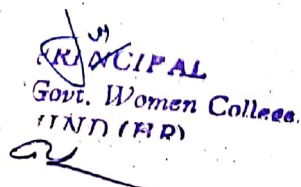 PRINCIPAL
Govt. Women College,
JIND (HR)